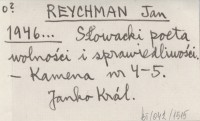 o? REYCHMAN Jan
1946... Słowacki poeta
wolności i sprawiedliwości.
– Kamena nr 4-5.
Janko Král.